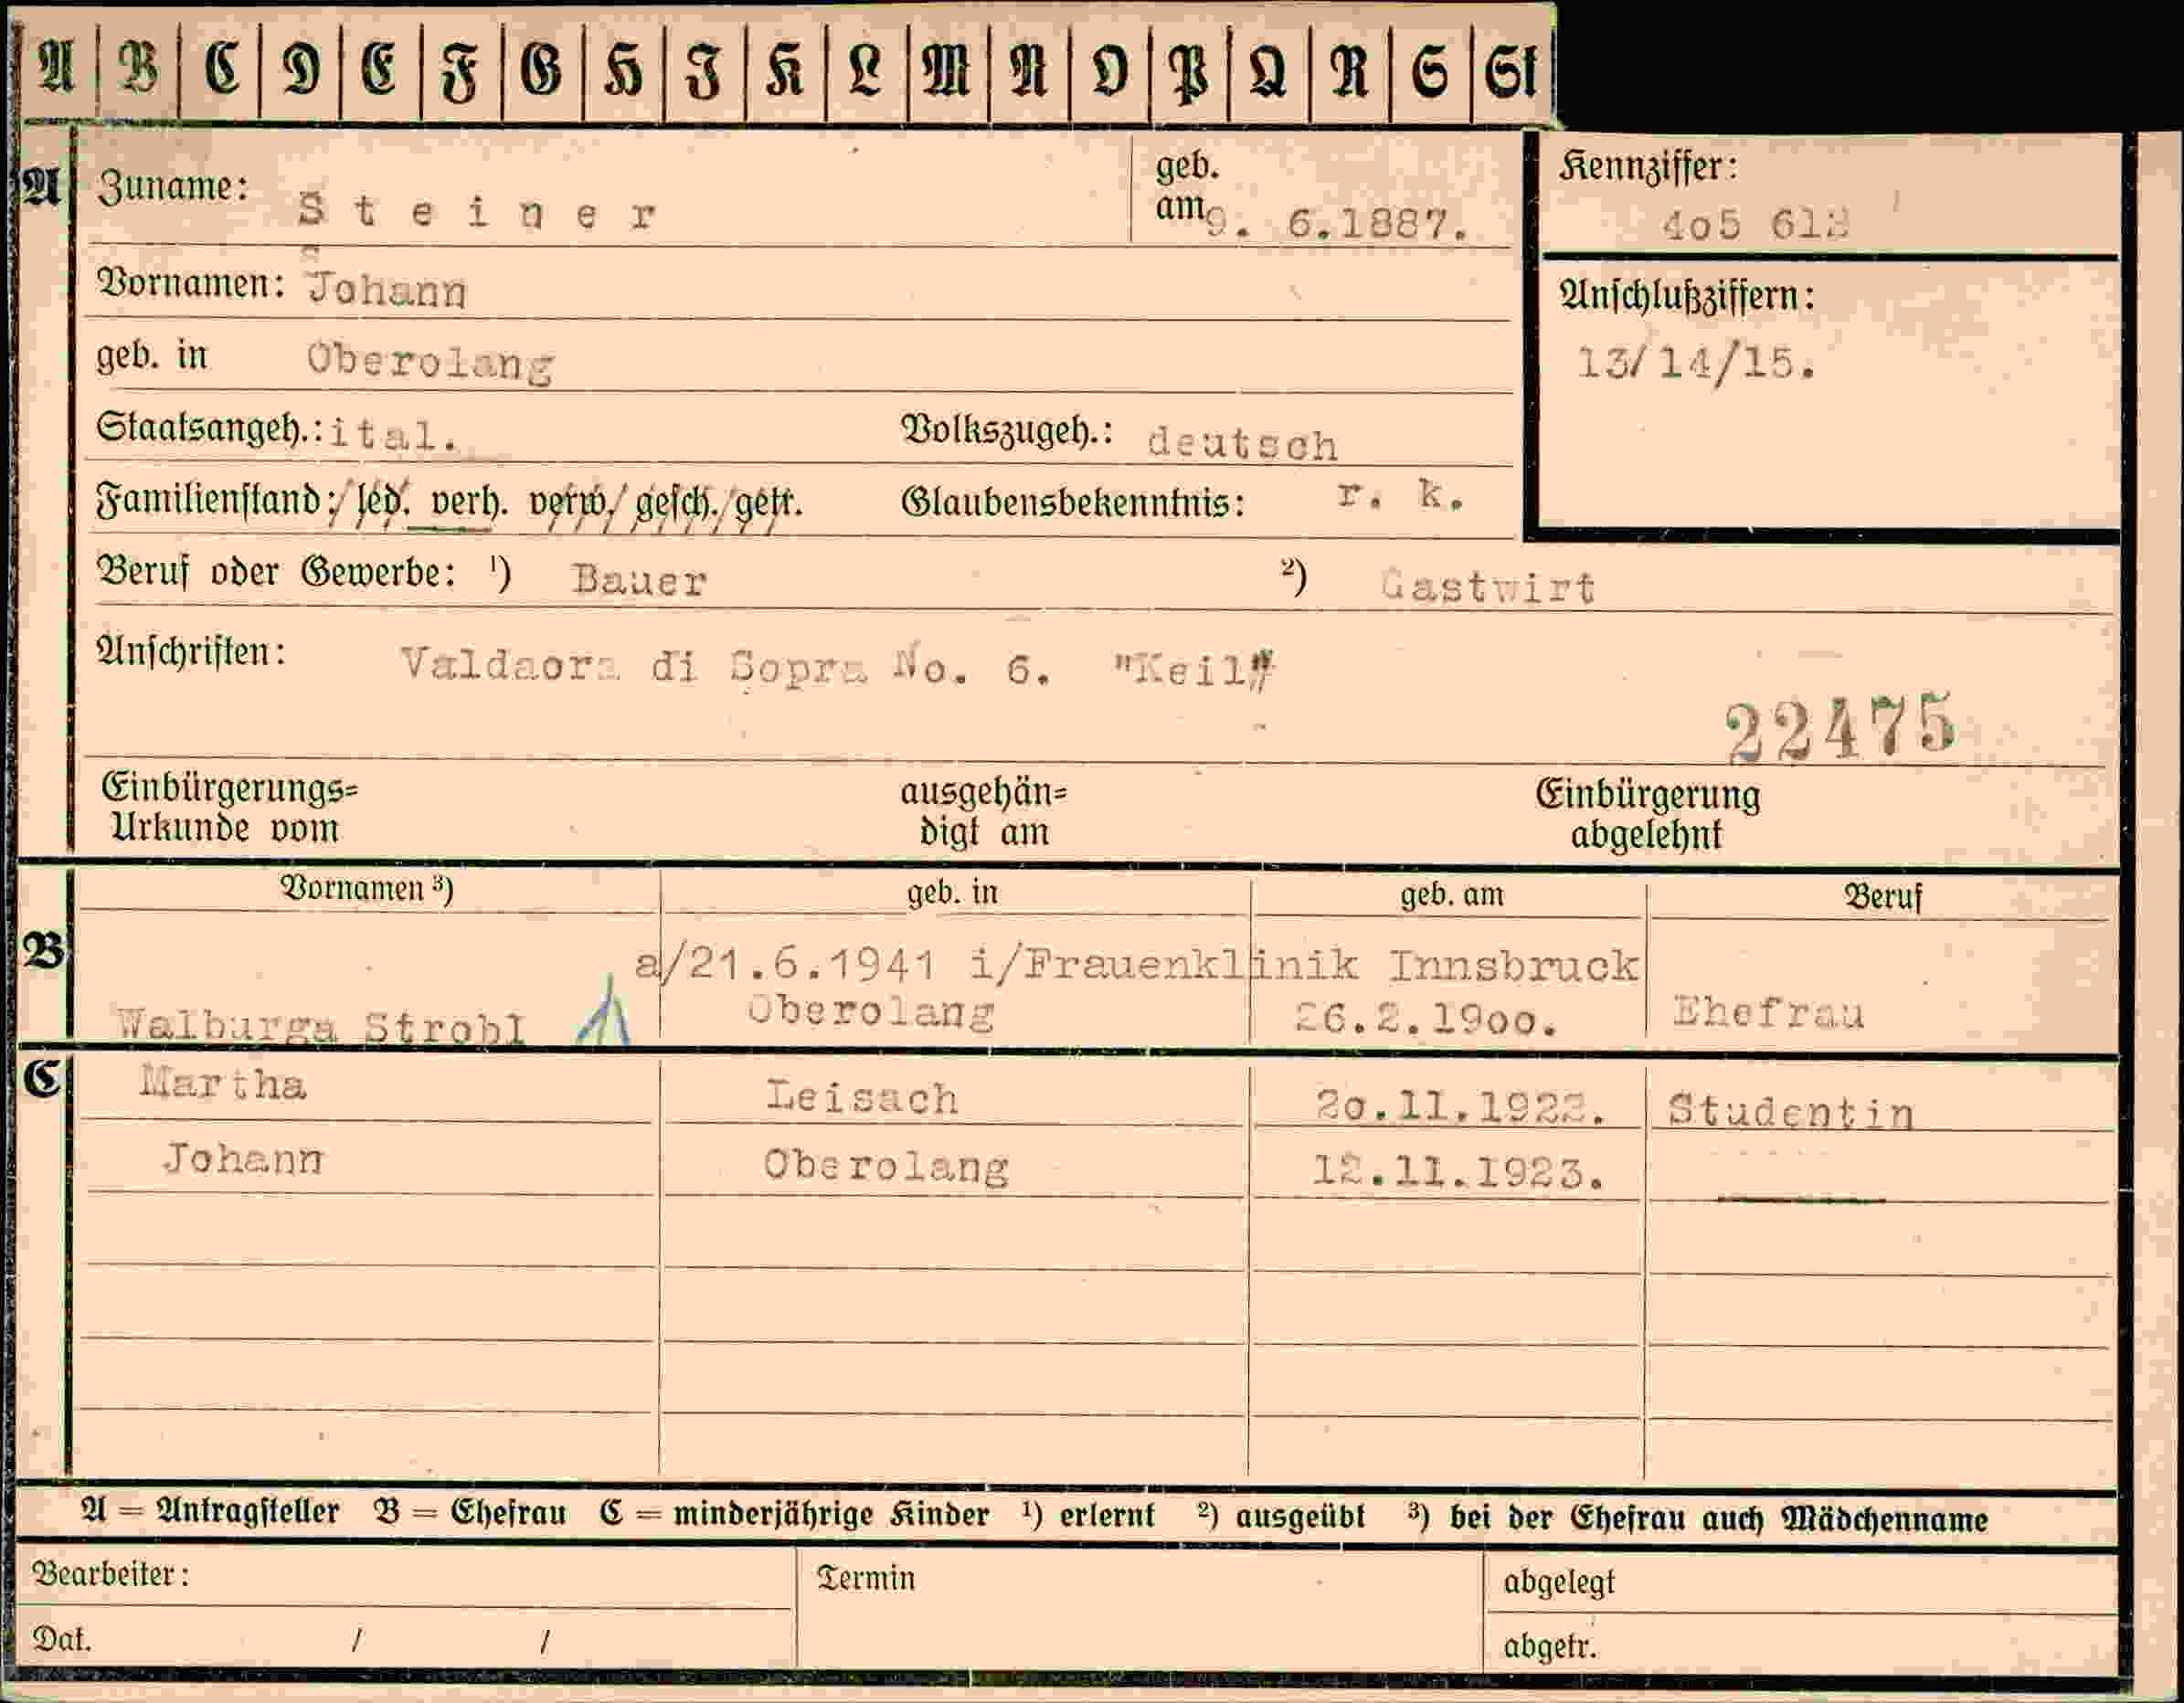 A B C D E F G H I K L M N O P Q R S St
A Zuname: Steiner geb. am 9. 6.1887. Kennziffer: 4o5 612
Vornamen: Johann Anschlußziffern:
geb. in Oberolang 13/14/15.
Staatsangeh.: ital. Volkszugeh.: deutsch
Familienstand: led. verh. verw. gesch. getr. Glaubensbekenntnis: r. k.
Beruf oder Gewerbe: ¹) Bauer ²) Gastwirt
Anschriften: Valdaora di Sopra No. 6. "Keil"
22475
Einbürgerungs= ausgehän= Einbürgerung
Urkunde vom digt am abgelehnt
Vornamen ³) geb. in geb. am Beruf
B a/21.6.1941 i/Frauenklinik Innsbruck
Walburga Strobl Oberolang 26.2.19oo. Ehefrau
C Martha Leisach 2o.11.1922. Studentin
Johann Oberolang 12.11.1923.
A = Antragsteller B = Ehefrau C = minderjährige Kinder ¹) erlernt ²) ausgeübt ³) bei der Ehefrau auch Mädchenname
Bearbeiter: Termin abgelegt
Dat. / / abgetr.